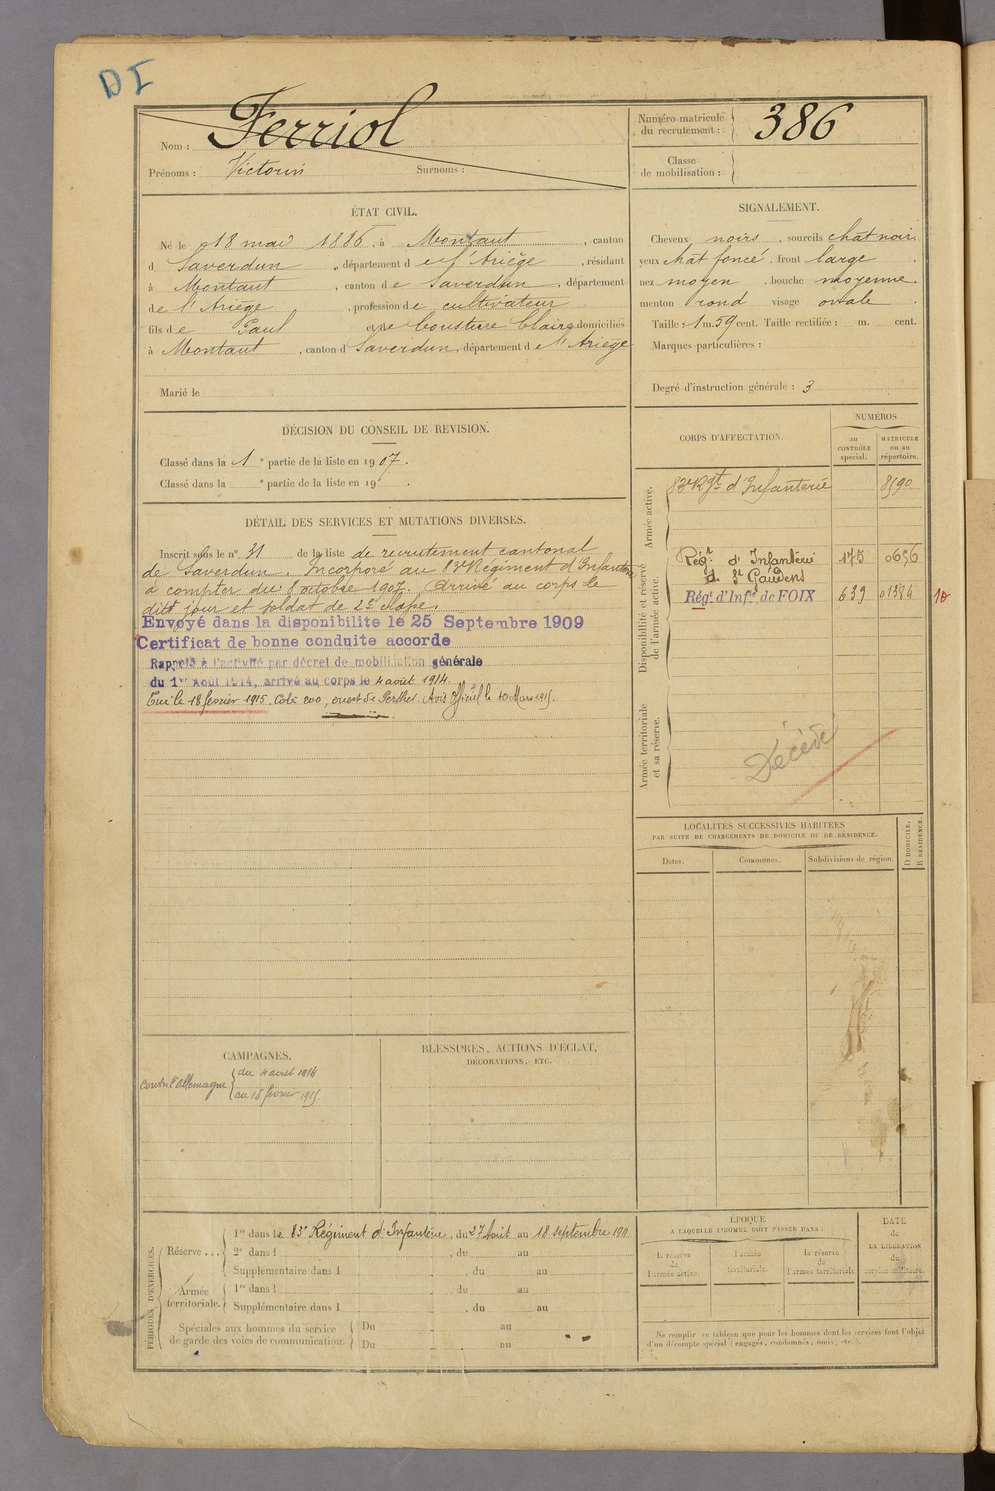 DI
Nom : Ferriol
Prénoms : Victorin Surnoms :
Numéro matricule du recrutement : 386
Classe de mobilisation :
ÉTAT CIVIL.
Né le 18 mai 1886, à Montaut, canton
d Saverdun, département de l'Ariège, résidant
à Montaut, canton de Saverdun, département
de l'Ariège, profession de cultivateur
fils de Paul et de Claire domiciliés
à Montaut, canton d Saverdun, département de l'Ariège
Marié le
SIGNALEMENT.
Cheveux noirs, sourcils chat noir,
yeux chat foncé, front large.
nez moyen, bouche moyenne,
menton rond visage ovale.
Taille : 1 m. 59 cent. Taille rectifiée : m. cent.
Marques particulières :
Degré d'instruction générale : 3
DÉCISION DU CONSEIL DE REVISION.
Classé dans la 1e partie de la liste en 1907.
Classé dans la e partie de la liste en 19 .
DÉTAIL DES SERVICES ET MUTATIONS DIVERSES.
Inscrit sous le n° 31 de la liste de recrutement cantonal
de Saverdun. Incorporé au 83e Régiment d'Infanterie
à compter du 8 octobre 1907. Arrivé au corps le
dit jour et soldat de 2e classe.
Envoyé dans la disponibilite le 25 Septembre 1909
Certificat de bonne conduite accorde
Rappelé à l'activité par décret de mobilisation générale
du 1er Août 1914, arrivé au corps le 4 aout 1914.
Tué le 18 février 1915. Cote 200, ouest de Perthes. Avis Officiel le 10 Mars 1915.
CORPS D'AFFECTATION.
NUMÉROS
au CONTRÔLE spécial.
MATRICULE ou au répertoire.
Armée active.
83e Rgt d'Infanterie 8590
Disponibilité et réserve de l'armée active.
Régt d'Infanterie 175 0656
d. St Gaudens
Régt d'Infie de FOIX 639 01384
10
Armée territoriale et sa réserve.
Décédé
LOCALITÉS SUCCESSIVES HABITÉES
PAR SUITE DE CHANGEMENTS DE DOMICILE OU DE RÉSIDENCE.
Dates. Communes. Subdivisions de région. D DOMICILE, R RÉSIDENCE.
CAMPAGNES.
Contre l'Allemagne du 4 aout 1914
au 18 février 1915
BLESSURES, ACTIONS D'ÉCLAT,
DÉCORATIONS, ETC.
PÉRIODES D'EXERCICES.
Réserve... 1re dans le 83e Régiment d'Infanterie, du 27 Août au 18 septembre 1911
2e dans l , du au
Supplémentaire dans l , du au
Armée territoriale. 1re dans l , du au
Supplémentaire dans l , du au
Spéciales aux hommes du service Du au
de garde des voies de communication. Du au
ÉPOQUE
À LAQUELLE L'HOMME DOIT PASSER DANS :
la réserve de l'armée active.
l'armée territoriale.
la réserve de l'armée territoriale
DATE de LA LIBÉRATION du service militaire.
Ne remplir ce tableau que pour les hommes dont les services font l'objet
d'un décompte spécial (engagés, condamnés, omis, etc.).